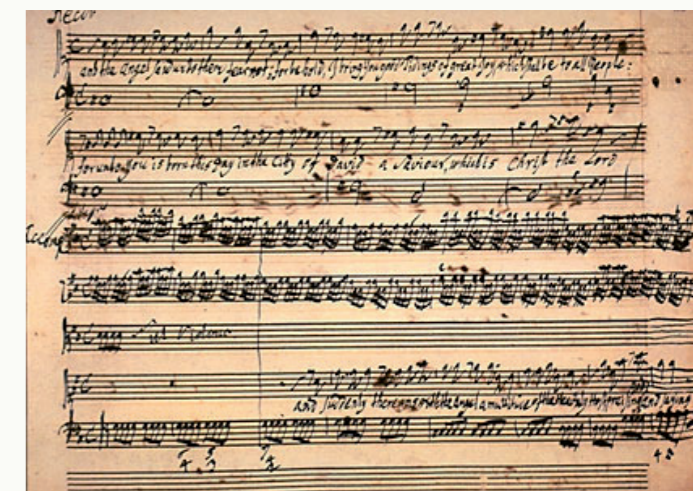 Recit
and the Angel said unto them fear not, for behold, I bring you good Tidings of great Joy, which shall be to all People:
for unto you is born this Day in the City of David a Saviour, which is Christ the Lord
Accomp
and suddenly there was with the Angel a multitude of the heavenly host praising God and saying